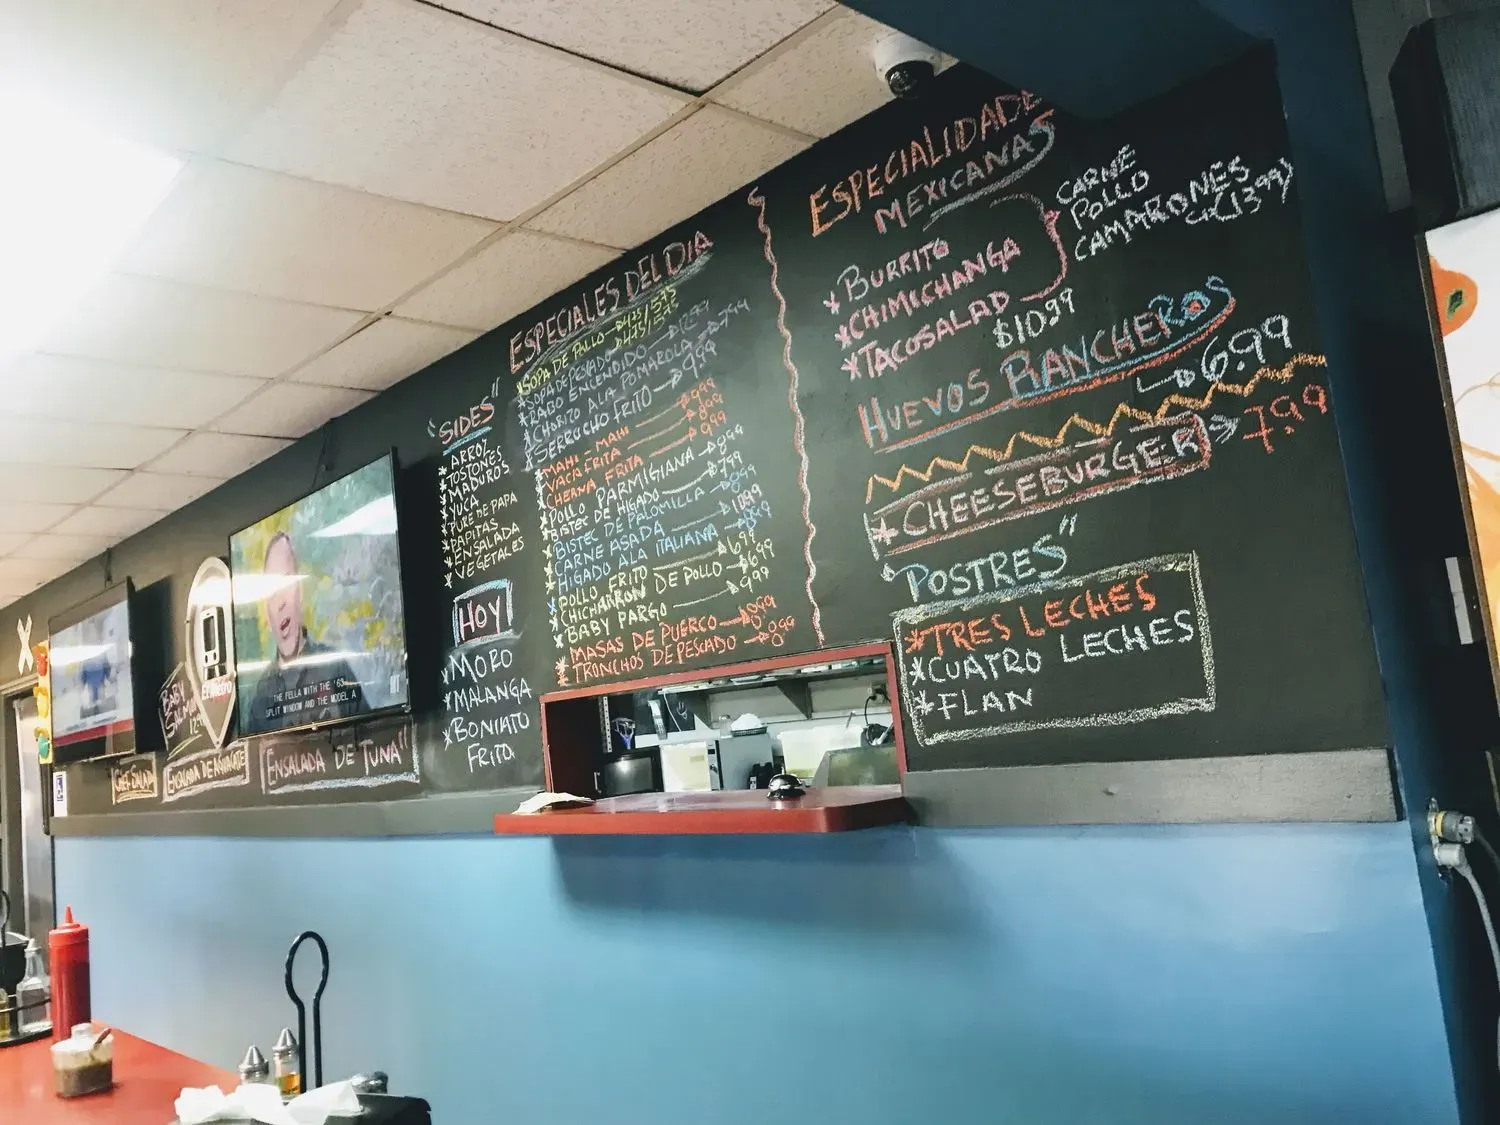 "SIDES"
* ARROZ
* TOSTONES
* MADUROS
* YUCA
* PURE DE PAPA
* PAPITAS
* ENSALADA
* VEGETALES
HOY
* MORO
* MALANGA
* BONIATO
FRITO
ESPECIALES DEL DIA
* SOPA DE POLLO 475/575
* SOPA DE PESCADO 475/575
* RABO ENCENDIDO
* CHORIZO A LA POMAROLA 799
* SERRUCHO FRITO 999
* MAHI-MAHI 999
* VACA FRITA 899
* CHERNA FRITA 999
* POLLO PARMIGIANA 899
* BISTEC DE HIGADO 799
* BISTEC DE PALOMILLA 899
* CARNE ASADA 1099
* HIGADO A LA ITALIANA 899
* POLLO FRITO 699
* CHICHARRON DE POLLO $699
* BABY PARGO 999
* MASAS DE PUERCO
* TRONCHOS DE PESCADO
ESPECIALIDADES
MEXICANAS
* BURRITO
* CHIMICHANGA
* TACOSALAD
CARNE
POLLO
CAMARONES
(1399)
$1099
HUEVOS RANCHEROS
699
* CHEESEBURGER 799
"POSTRES"
* TRES LECHES
* CUATRO LECHES
* FLAN
BABY
SALMON
El Metro
THE FELLA WITH THE '63
SPLIT WINDOW AND THE MODEL A
CHEF SALAD
ENSALADA DE AGUACATE
ENSALADA DE TUNA"